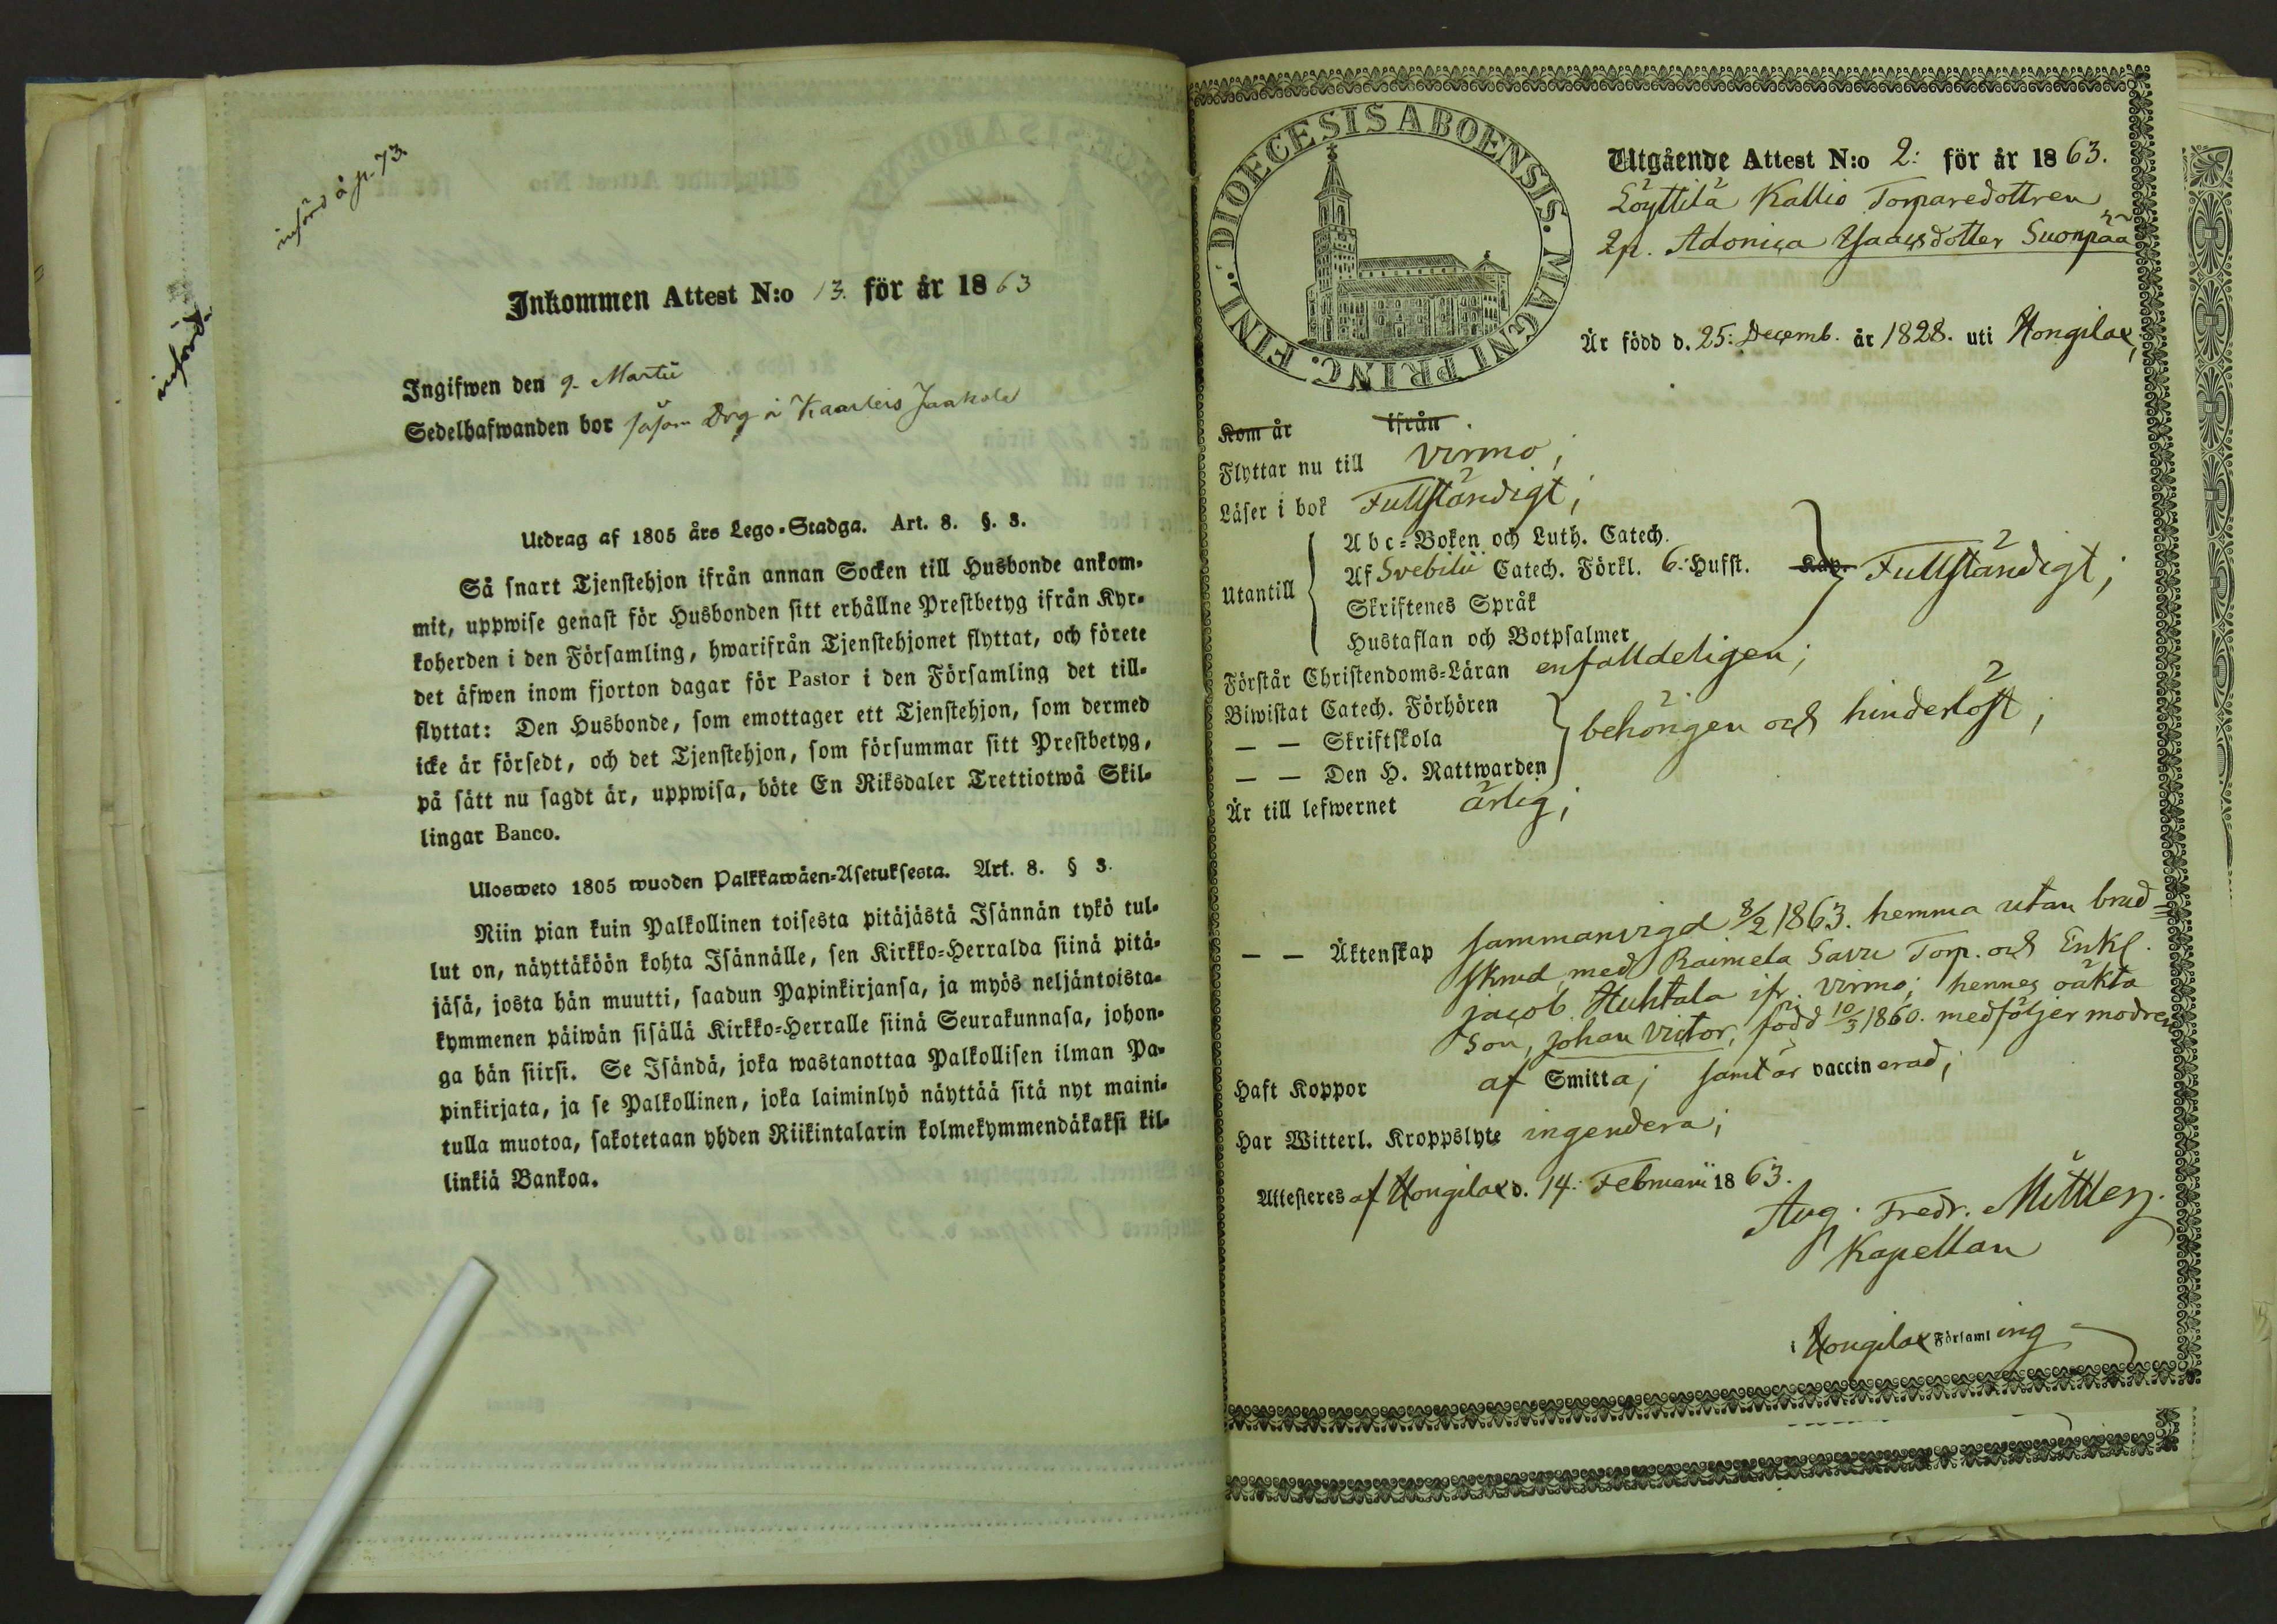 införd å p. 73.
införd.
Inkommen Attest N:o 13. för år 1863
Ingifwen den 9. Martii
Sedelhafwanden bor såsom Drg å Kaarleis Jaakola
Utdrag af 1805 års Lego-Stadga. Art. 8. §. 3.
Så snart Tjenstehjon ifrån annan Socken till Husbonde ankom-
mit, uppwise genast för Husbonden sitt erhållne Prestbetyg ifrån Kyr-
koherden i den Församling, hwarifrån Tjenstehjonet flyttat, och förete
det äfwen inom fjorton dagar för Pastor i den Församling det till-
flyttat: Den Husbonde, som emottager ett Tjenstehjon, som dermed
icke är försedt, och det Tjenstehjon, som försummar sitt Prestbetyg,
på sätt nu sagdt är, uppwisa, böte En Riksdaler Trettiotwå Skil-
lingar Banco.
Ulosweto 1805 wuoden Palkkawäen-Asetuksesta. Art. 8. § 3.
Niin pian kuin Palkollinen toisesta pitäjästä Isännän tykö tul-
lut on, näyttäköön kohta Isännälle, sen Kirkko-Herralda siinä pitä-
jäsä, josta hän muutti, saadun Papinkirjansa, ja myös neljäntoista-
kymmenen päiwän sisällä Kirkko-Herralle siinä Seurakunnasa, johon-
ga hän siirsi. Se Isändä, joka wastanottaa Palkollisen ilman Pa-
pinkirjata, ja se Palkollinen, joka laiminlyö näyttää sitä nyt maini-
tulla muotoa, sakotetaan yhden Riikintalarin kolmekymmendäkaksi kil-
linkiä Bankoa.
DIOECESIS ABOENSIS. MAGNI PRINC. FINL.
Utgående Attest N:o 2: för år 1863.
Löyttilä Kallio Torparedottren
2pi. Adonica Isaacsdotter Suonpää
Är född d. 25: Decemb. år 1828. uti Hongilax;
Kom år ifrån
Flyttar nu till Virmo;
Läser i bok Fullständigt;
Utantill
Abc-Boken och Luth. Catech.
Af Svebilii Catech. Förkl. 6: Hufst. Kap. Fullständigt;
Skriftenes Språk
Hustaflan och Botpsalmer
Förstår Christendoms-Läran enfalldeligen;
Biwistat Catech. Förhören
— — Skriftskola behörigen och hinderlöst;
— — Den H. Nattwarden
Är till lefwernet ärlig;
— — Äktenskap sammanvigd 8/2 1863. hemma utan brud=
skrud, med Raimela Savu Torp. och Enkl.
jacob Huhtala ifr. Virmo; hennes oäkta
Son, Johan Victor, född 10/3 1860. medföljer modren
Haft Koppor af Smitta; samt är vaccinerad;
Har Witterl. Kroppslyte ingendera;
Attesteres af Hongilax d. 14: Februarii 1863.
Aug. Fredr. Müttler.
Kapellan
i Hongilax Församling